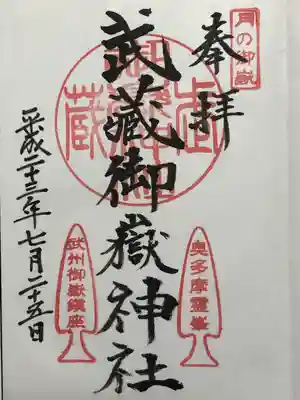 月の御嶽
奉拝
奥多摩霊峯
武蔵御嶽神社
武州御嶽鎮座
平成二十三年七月二十五日